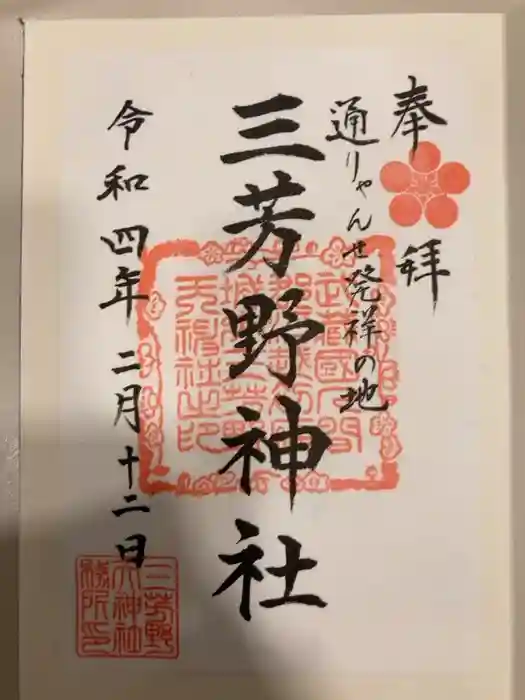 奉拝
通りゃんせ発祥の地
三芳野神社
令和四年二月十二日
三芳野
神社